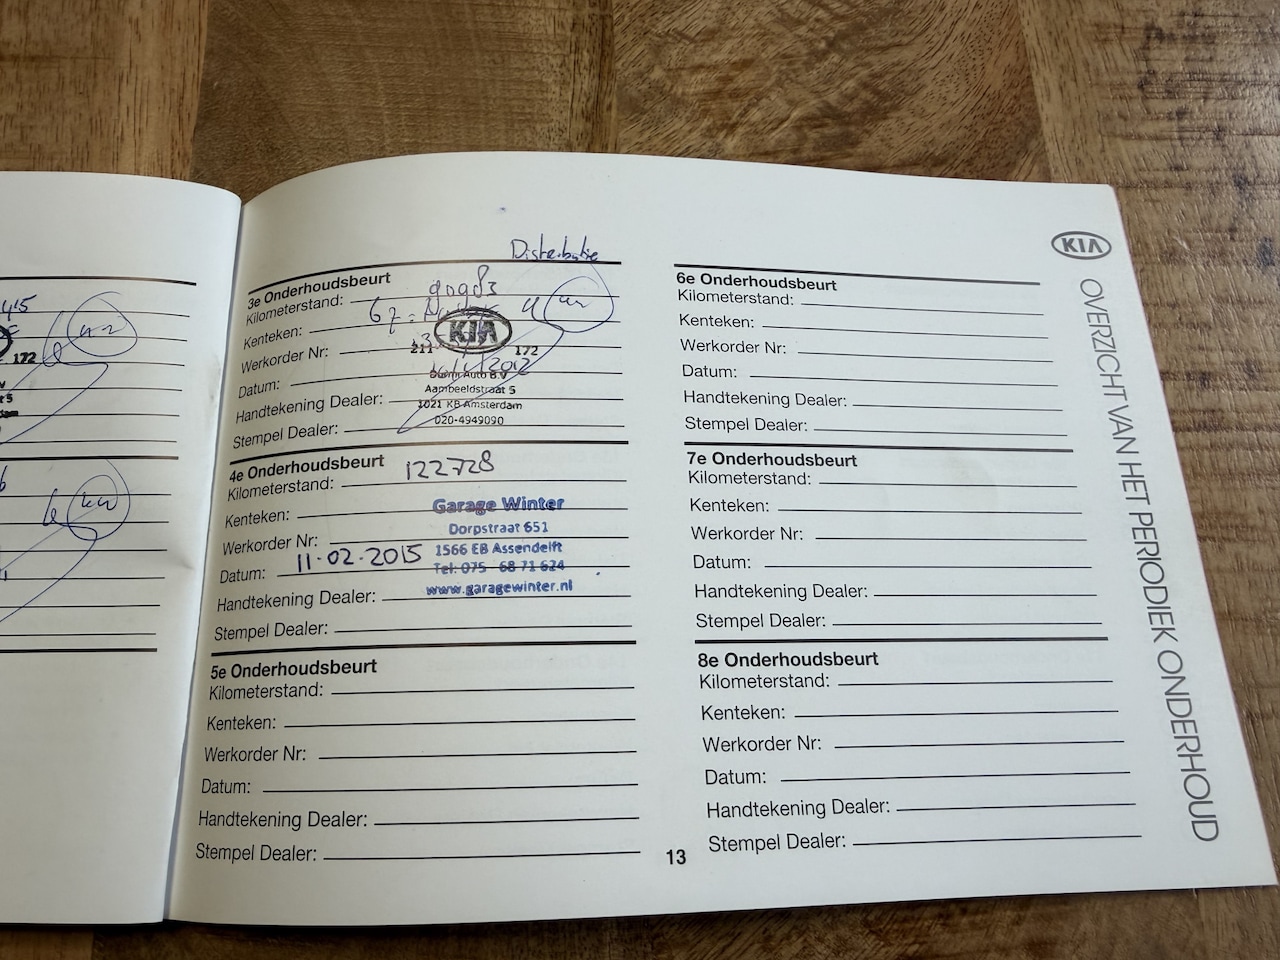 Distributie
3e Onderhoudsbeurt
Kilometerstand: 90983
Kenteken:
Werkorder Nr:
KIA
211 172
Datum:
Auto B.V
Aambeeldstraat 5
Handtekening Dealer:
1021 KB Amsterdam
Stempel Dealer:
020-4949090
4e Onderhoudsbeurt
Kilometerstand: 122728
Kenteken:
Garage Winter
Dorpstraat 651
Werkorder Nr:
1566 EB Assendelft
Datum: 11-02-2015
Tel: 075 - 68 71 624
Handtekening Dealer:
www.garagewinter.nl
Stempel Dealer:
5e Onderhoudsbeurt
Kilometerstand:
Kenteken:
Werkorder Nr:
Datum:
Handtekening Dealer:
Stempel Dealer:
6e Onderhoudsbeurt
Kilometerstand:
Kenteken:
Werkorder Nr:
Datum:
Handtekening Dealer:
Stempel Dealer:
7e Onderhoudsbeurt
Kilometerstand:
Kenteken:
Werkorder Nr:
Datum:
Handtekening Dealer:
Stempel Dealer:
8e Onderhoudsbeurt
Kilometerstand:
Kenteken:
Werkorder Nr:
Datum:
Handtekening Dealer:
Stempel Dealer:
13
KIA
OVERZICHT VAN HET PERIODIEK ONDERHOUD
172